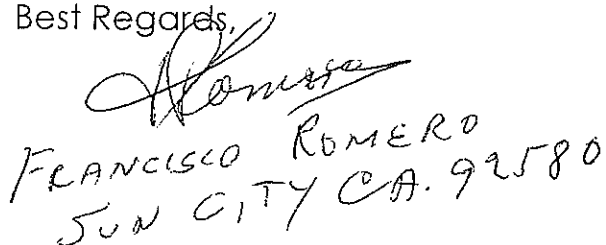 Best Regards,
Romero
FRANCISCO ROMERO
SUN CITY CA. 92580